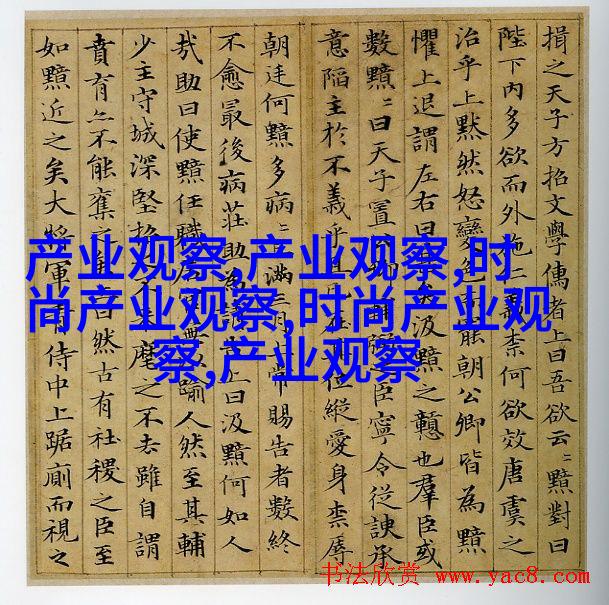 損之天子方招文學儒者上曰吾欲云〻黯對曰
陛下內多欲而外施仁義柰何欲效唐虞之
治乎上默然怒變色而罷朝公卿皆為黯
懼上退謂左右曰甚矣汲黯之戇也羣臣或
數黯〻曰天子置輔之臣寧令從諛承
意陷主於不義乎且在其位縱愛身柰辱
朝廷何黯多病〻且滿三月上常賜告者數終
不愈最後病莊助為請告上曰汲黯何如人
㢤助曰使黯任職居踰人然至其輔
少主守城深堅招之不來麾之不去雖自謂
賁育亦不能奪之曰然古有社稷之臣至
如黯近之矣大將軍青侍中上踞廁而視之
产业观察,产业观察,时
尚产业观察,时尚产业观
察,产业观察
书法欣赏 www.yac8.com